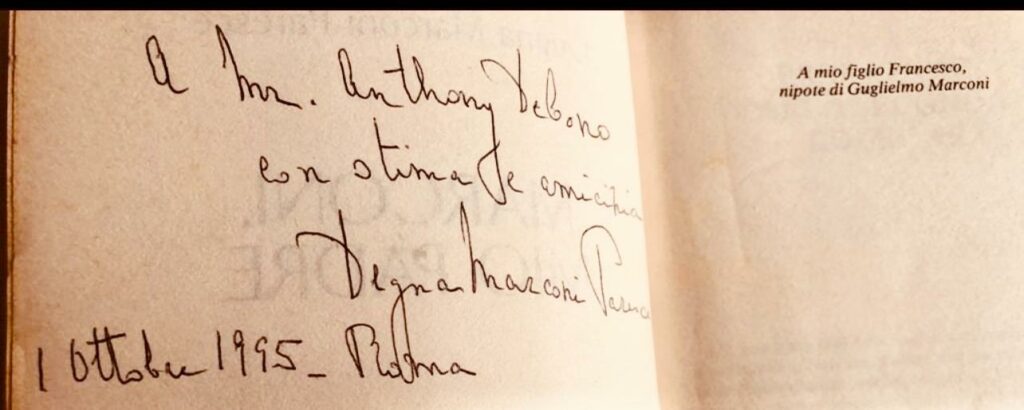 A Mr. Anthony Debono
con stima e amicizia
Degna Marconi Paresce
1 Ottobre 1995 - Roma
A mio figlio Francesco,
nipote di Guglielmo Marconi